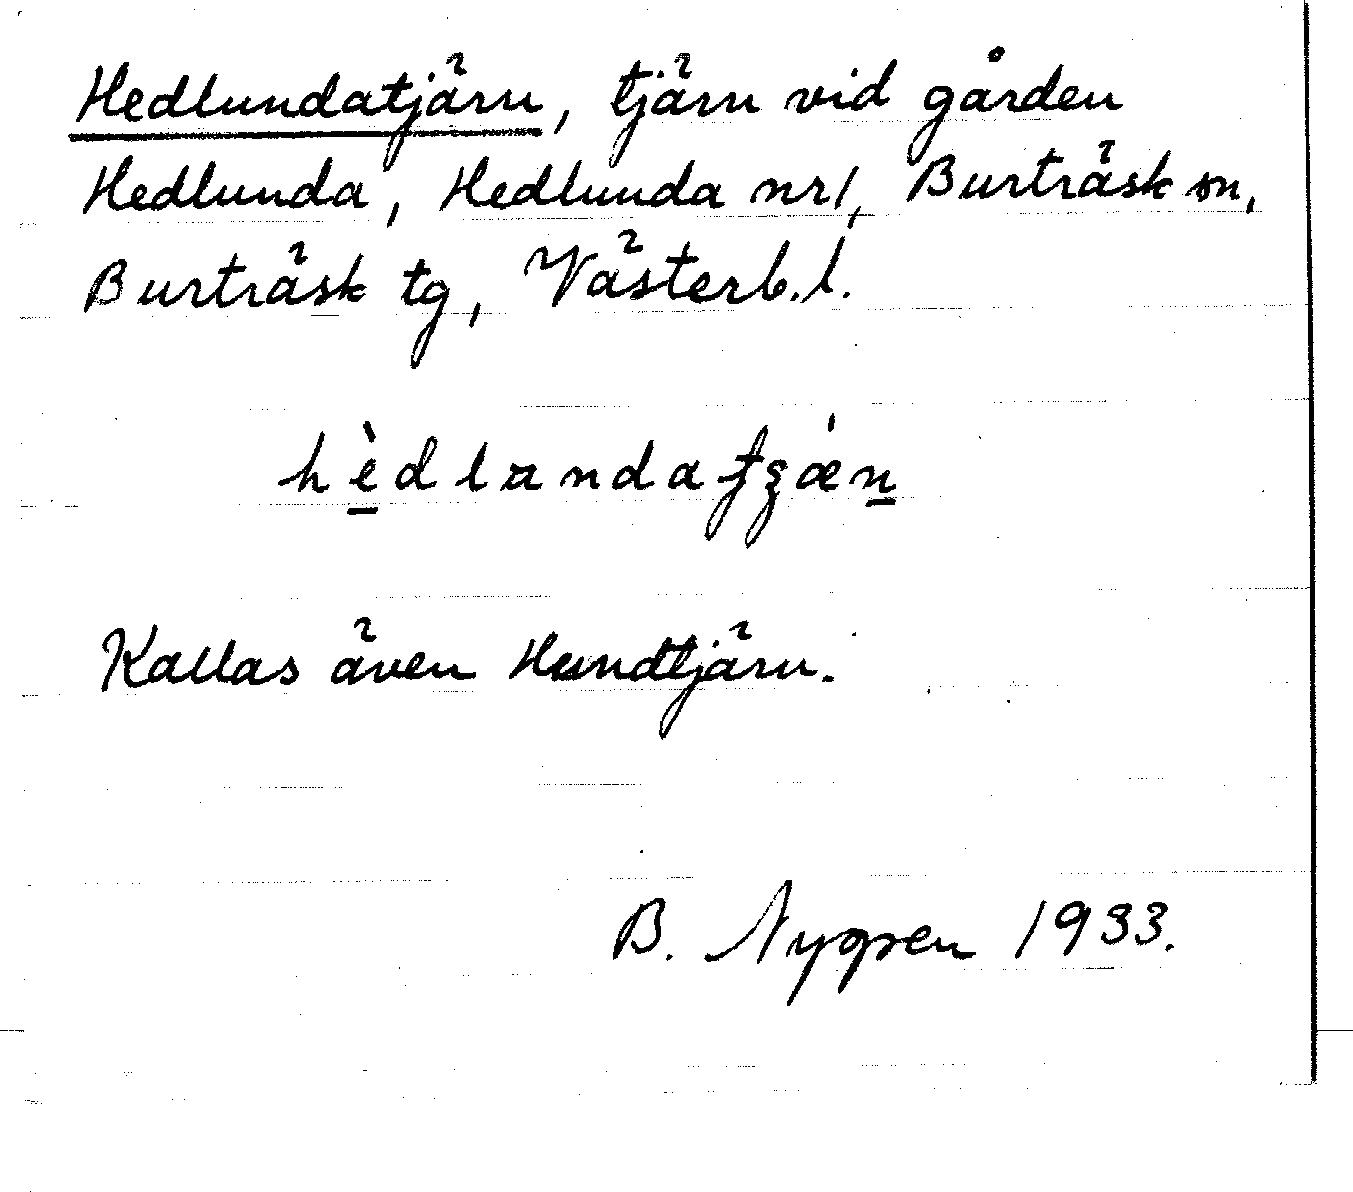 Hedlundatjärn, tjärn vid gården
Hedlunda, Hedlunda nr 1, Burträsk sn,
Burträsk tg, Västerb. l.
Kallas även Hundtjärn.
B. Nygren 1933.